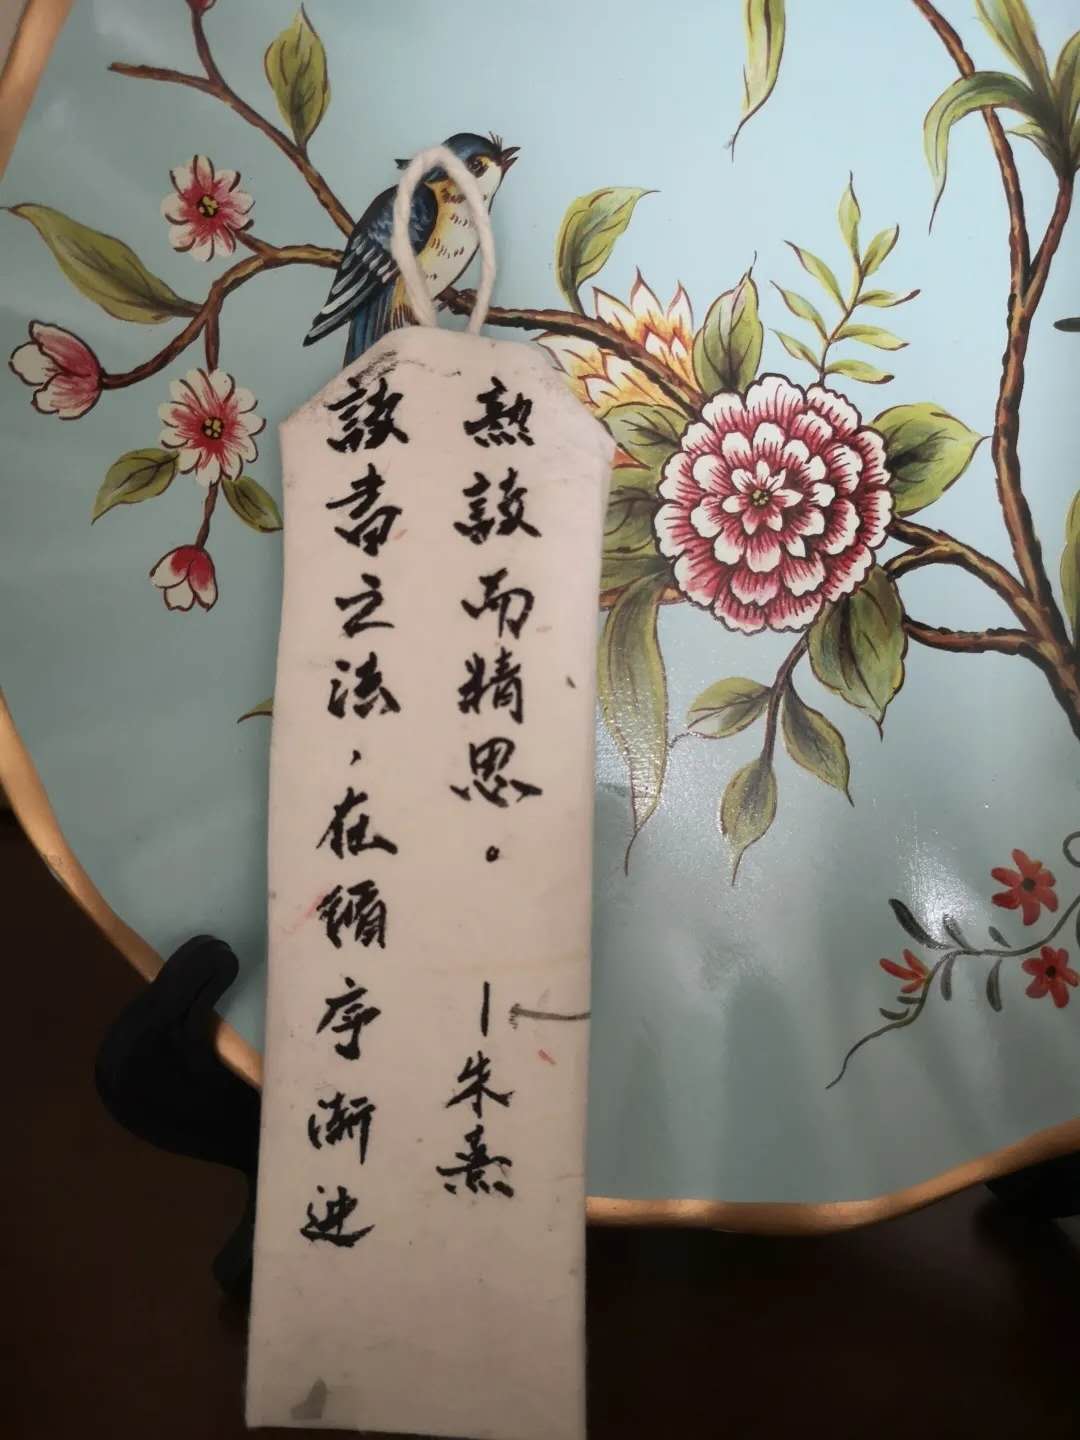 读书之法，在循序渐进
熟读而精思。
—朱熹